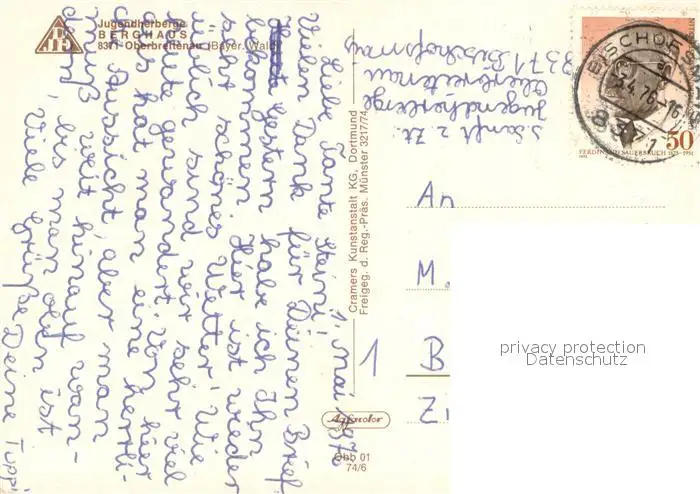 Jugendherberge
BERGHAUS
8371 Oberbreitenau (Bayer. Wald)
1. Mai 1976
Liebe Tante Steini,
Vielen Dank für Deinen Brief.
Gestern habe ich Ihn
bekommen. Hier ist wieder
sehr schönes Wetter. Wie
neulich sind wir sehr viel
heute gewandert. Von hier
aus hat man eine herrli-
che Aussicht, aber man
muß weit hinauf wan-
dern, bis man oben ist.
Viele Grüße Deine Tuppi
Cramers Kunstanstalt KG, Dortmund
Freigeg. d. Reg.-Präs. Münster 3217/74
Agfacolor
Obb 01
74/6
z. Zt.
Jugendherberge
Oberbreitenau
8371 Bischofsmais
BISCHOFS
76-16
8371
50
FERDINAND SAUERBRUCH 1875-1951
An
M.
1 B
Zi
privacy protection
Datenschutz